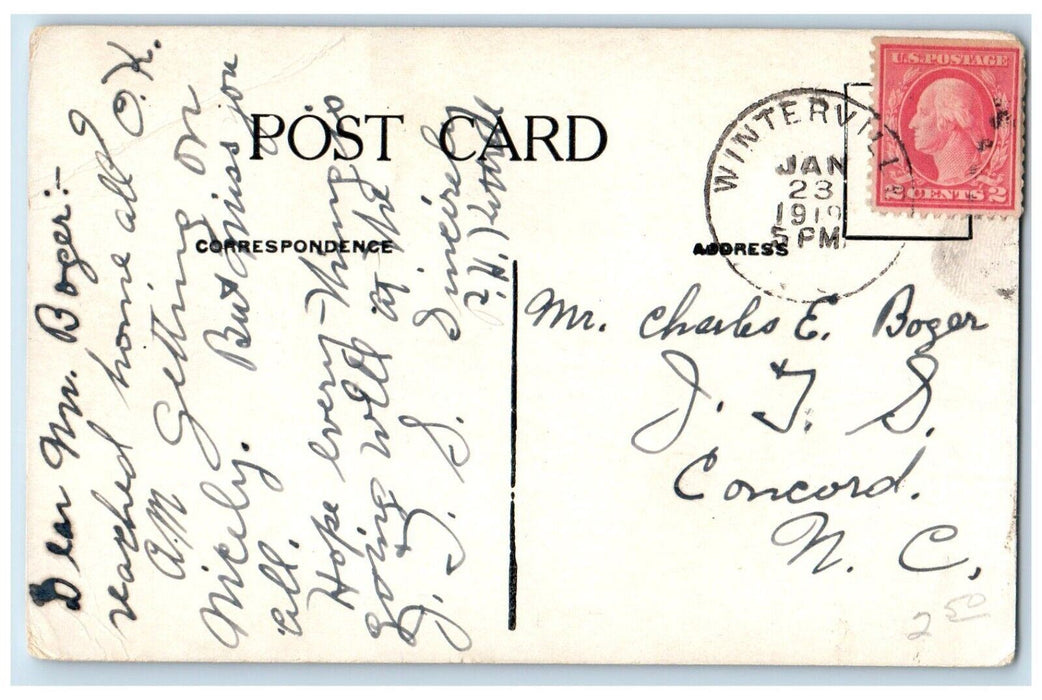 POST CARD
CORRESPONDENCE
ADDRESS
WINTERVILL
JAN
23
191
5 PM
U.S. POSTAGE
2 CENTS 2
Dear Mr. Boger:-
reached home all O.K.
am getting on
nicely. But miss you
all.
Hope every-thing is
going well at the
J. T. S. Sincerely
Mr. Charles E. Boger
J. T. S.
Concord.
N. C.
2 50